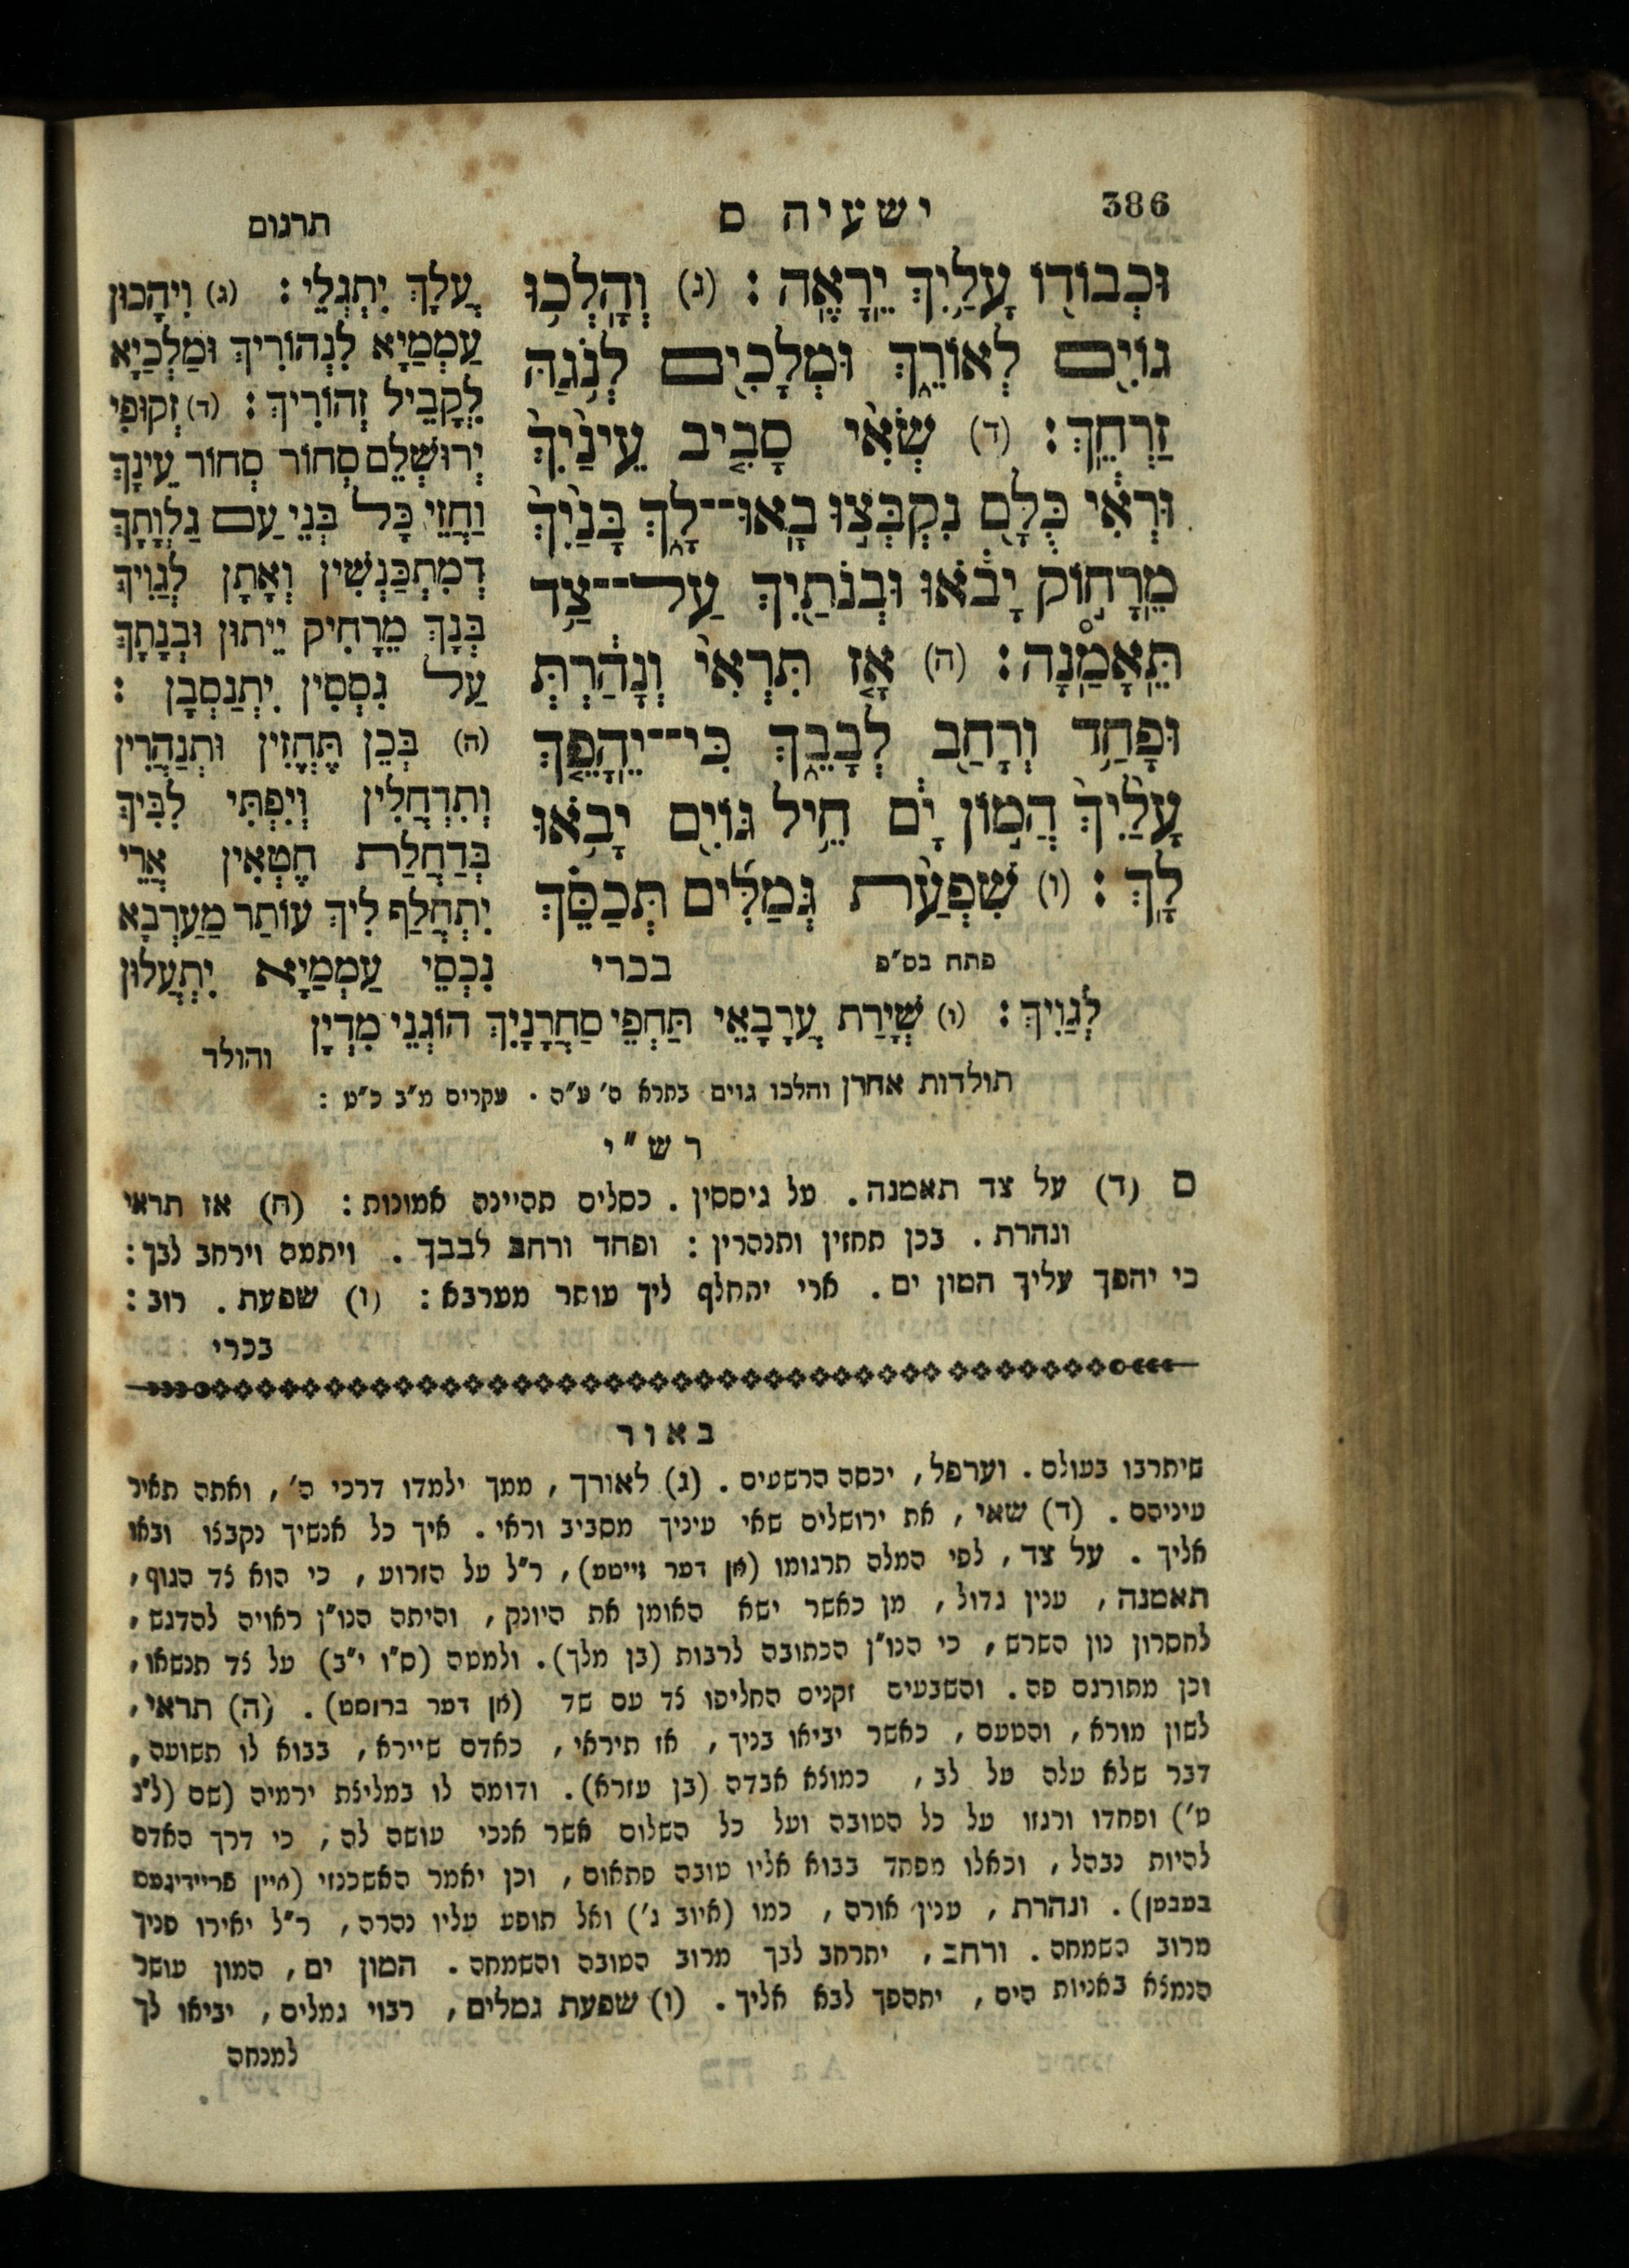 386
ישעיה ס
תרגום
וּכְבוֹדוֹ עָלַיִךְ יֵרָאֶה : (ג) וְהָלְכוּ
גוֹיִם לְאוֹרֵךְ וּמְלָכִים לְנֹגַהּ
זַרְחֵךְ : (ד) שְׂאִי סָבִיב עֵינַיִךְ
וּרְאִי כֻּלָּם נִקְבְּצוּ בָאוּ־לָךְ בָּנַיִךְ
מֵרָחוֹק יָבֹאוּ וּבְנֹתַיִךְ עַל־צַד
תֵּאָמַנָה : (ה) אָז תִּרְאִי וְנָהַרְתְּ
וּפָחַד וְרָחַב לְבָבֵךְ כִּי־יֵהָפֵךְ
עָלַיִךְ הֲמוֹן יָם חֵיל גּוֹיִם יָבֹאוּ
לָךְ : (ו) שִׁפְעַת גְּמַלִּים תְּכַסֵּךְ
פתח בס״פ
בכרי
עֲלָךְ יִתְגְלֵי : (ג) וִיהָכוּן
עַמְמַיָא לִנְהוֹרִיךְ וּמַלְכַיָא
לָקֳבֵיל זְהוֹרִיךְ : (ד) זְקוּפִי
יְרוּשְׁלֵם סְחוֹר סְחוֹר עֵינָךְ
וַחֲזֵי כָּל בְּנֵי עַם גַלְוָתָךְ
דְמִתְכַּנְשִׁין וְאָתָן לְגַוִיךְ
בְּנָךְ מֵרָחִיק יֵיתוּן וּבְנָתָךְ
עַל גִסְסִין יִתְנַסְבָן :
(ה) בְּכֵן תֶּחֱזִין וּתְנַהֲרִין
וְתִדְחֲלִין וְיִפְתִּי לִבִּיךְ
בְּדַחֲלַת חֶטְאִין אֲרֵי
יִתְחֲלַף לִיךְ עוֹתַר מַעַרְבָא
נִכְסֵי עַמְמַיָא יִתְעֲלוּן
לְגַוִיךְ : (ו) שְׁיָרַת עֲרָבָאֵי תַּחְפֵי סַחֲרָנָיִךְ הוֹגְנֵי מִדְיָן
והולד
תולדות אהרן והלכו גוים בתרא ס׳ ע״ה . עקרים מ״ב כ״ט :
רש״י
ס (ד) על צד תאמנה . על גיססין . כסלים תהיינה אמונות : (ה) אז תראי
ונהרת . בכן תחזין ותנהרין : ופחד ורחב לבבך . ויתמה וירחב לבך :
כי יהפך עליך המון ים . ארי יתחלף ליך עותר מערבא : (ו) שפעת . רוב :
בכרי
באור
שיתרבו בעולם . וערפל , יכסה הרשעים . (ג) לאורך , ממך ילמדו דרכי ה׳ , ואתה תאיר
עיניהם . (ד) שאי , את ירושלים שאי עיניך מסביב וראי . איך כל אנשיך נקבצו ובאו
אליך . על צד , לפי המלה תרגומו (אן דער זייטע) , ר״ל על הזרוע , כי הוא צד הגוף ,
תאמנה , ענין גדול , מן כאשר ישא האומן את היונק , והיתה הנו״ן ראויה להדגש ,
לחסרון נון השרש , כי הנו״ן הכתובה לרבות (בן מלך) . ולמטה (ס״ו י״ב) על צד תנשאו ,
וכן מתורגם פה . והשבעים זקנים החליפו צד עם שד (אן דער ברוסט) . (ה) תראי ,
לשון מורא , והטעם , כאשר יביאו בניך , אז תיראי , כאדם שיירא , בבוא לו תשועה ,
דבר שלא עלה על לב , כמוצא אבדה (בן עזרא) . ודומה לו במליצת ירמיה (שם (ל״ג
ט׳) ופחדו ורגזו על כל הטובה ועל כל השלום אשר אנכי עושה לה , כי דרך האדם
להיות נבהל , וכאלו מפחד בבוא אליו טובה פתאום , וכן יאמר האשכנזי (איין פריידיגעס
בעבטן) . ונהרת , ענין אורה , כמו (איוב ג׳) ואל תופע עליו נהרה , ר״ל יאירו פניך
מרוב השמחה . ורחב , יתרחב לבך מרוב הטובה והשמחה . המון ים , המון עושר
הנמצא באניות הים , יתהפך לבא אליך . (ו) שפעת גמלים , רבוי גמלים , יביאו לך
למנחה